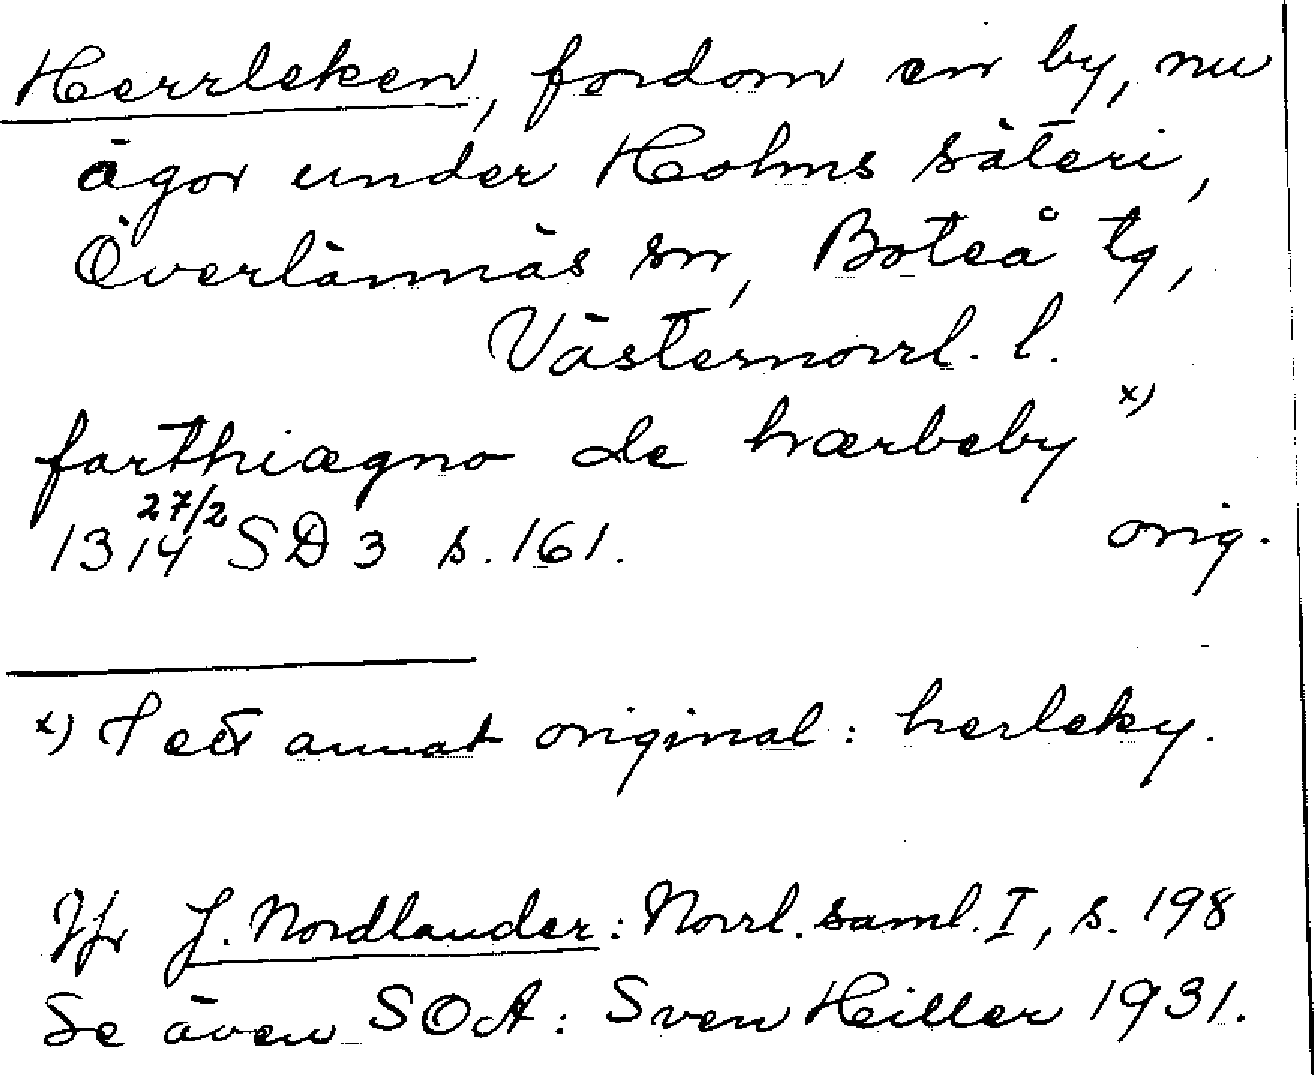 Herrleken, fordom en by, nu
ägor under Holms säteri,
Överlännäs sn, Boteå tg,
Västernorrl. l.
farthiægno de hrærbeby x)
13 27/2 14 SD 3 s. 161. orig.
x) I ett annat original: herleky.
Jfr J. Nordlander: Norrl. saml. I, s. 198
Se även SOA: Sven Hiller 1931.